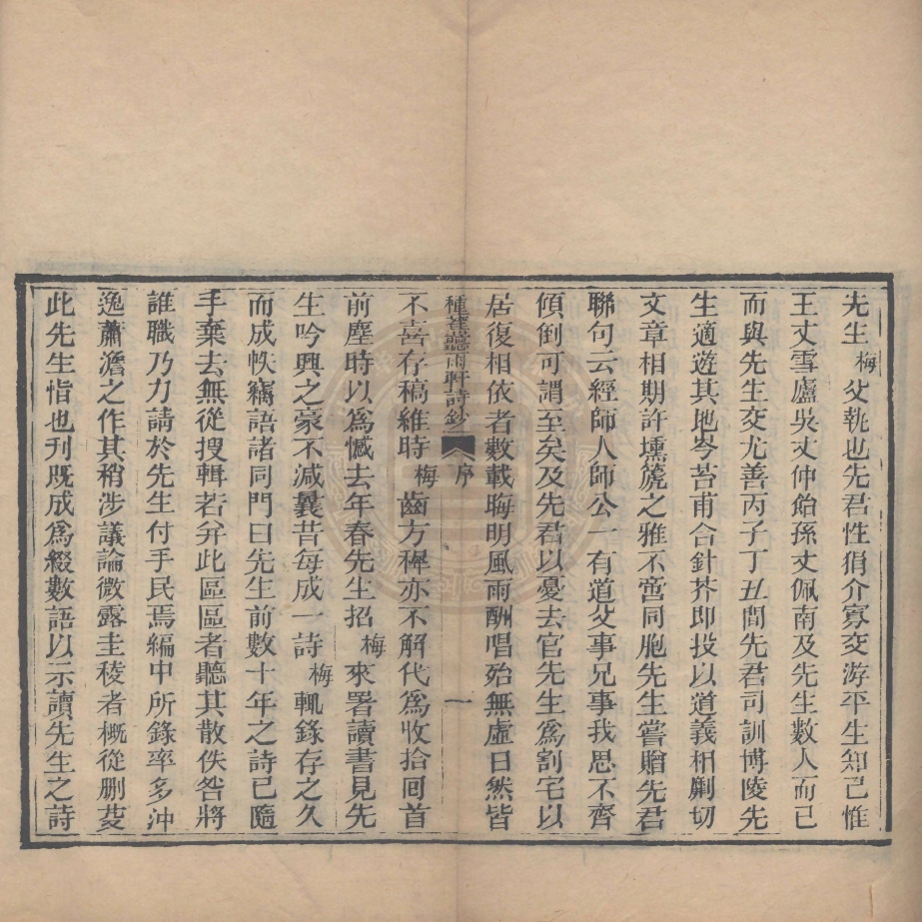 先生梅父執也先君性狷介寡交游平生知己惟
王丈雪廬吳丈仲飴孫丈佩南及先生數人而已
而與先生交尤善丙子丁丑間先君司訓博陵先
生適遊其地岑苔甫合針芥即投以道義相劘切
文章相期許壎箎之雅不啻同胞先生嘗贈先君
聯句云經師人師公一有道父事兄事我思不齊
傾倒可謂至矣及先君以憂去官先生為割宅以
居復相依者數載晦明風雨酬唱殆無虛日然皆
種蓮聽雨軒詩鈔 序 一
不喜存稿維時梅齒方穉亦不解代為收拾囘首
前塵時以為憾去年春先生招梅來署讀書見先
生吟興之豪不減曩昔每成一詩梅輒錄存之久
而成帙竊語諸同門曰先生前數十年之詩已隨
手棄去無從搜輯若并此區區者聽其散佚咎將
誰職乃力請於先生付手民焉編中所錄率多沖
逸蕭澹之作其稍涉議論微露圭稜者概從刪芟
此先生恉也刊既成為綴數語以示讀先生之詩